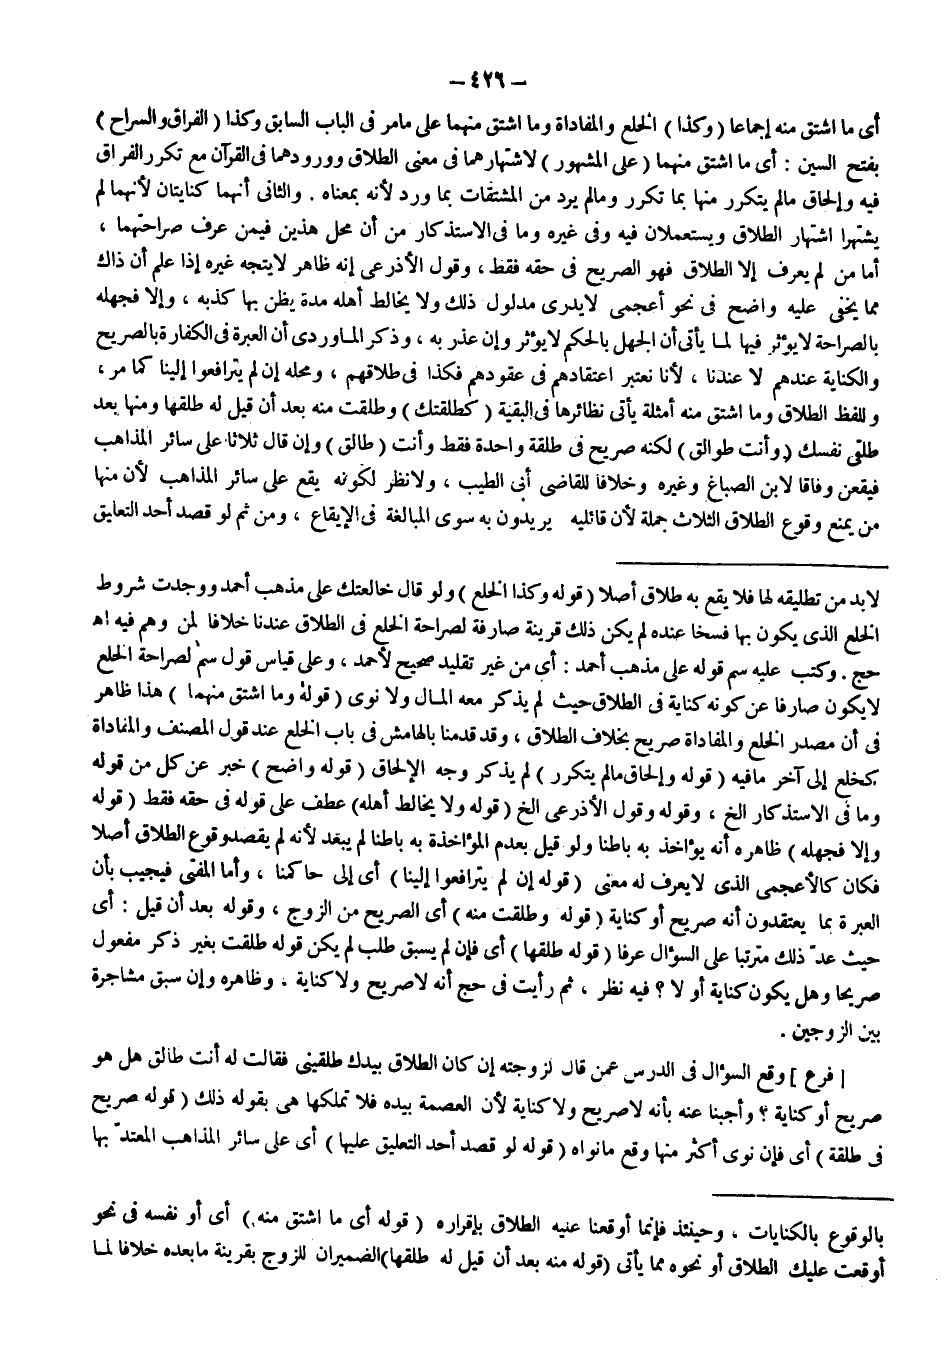 — ٤٢٦ —
أى ما اشتق منه إجماعا ( وكذا ) الخلع والمفاداة وما اشتق منهما على مامر فى الباب السابق وكذا ( الفراق والسراح )
بفتح السين : أى ما اشتق منهما ( على المشهور ) لاشتهارهما فى معنى الطلاق وورودهما فى القرآن مع تكرر الفراق
فيه وإلحاق مالم يتكرر منها بما تكرر ومالم يرد من المشتقات بما ورد لأنه بمعناه . والثانى أنهما كنايتان لأنهما لم
يشتهرا اشتهار الطلاق ويستعملان فيه وفى غيره وما فى الاستذكار من أن محل هذين فيمن عرف صراحتهما ،
أما من لم يعرف إلا الطلاق فهو الصريح فى حقه فقط ، وقول الأذرعى إنه ظاهر لايتجه غيره إذا علم أن ذاك
مما يخفى عليه واضح فى نحو أعجمى لايدرى مدلول ذلك ولا يخالط أهله مدة يظن بها كذبه ، وإلا فجهله
بالصراحة لايؤثر فيها لما يأتى أن الجهل بالحكم لايؤثر وإن عذر به ، وذكر الماوردى أن العبرة فى الكفار بالصريح
والكناية عندهم لا عندنا ، لأنا نعتبر اعتقادهم فى عقودهم فكذا فى طلاقهم ، ومحله إن لم يترافعوا إلينا كما مر ،
وللفظ الطلاق وما اشتق منه أمثلة يأتى نظائرها فى البقية ( كطلقتك ) وطلقت منه بعد أن قيل له طلقها ومنها بعد
طلقى نفسك ( وأنت طوالق ) لكنه صريح فى طلقة واحدة فقط وأنت ( طالق ) وإن قال ثلاثا على سائر المذاهب
فيقعن وفاقا لابن الصباغ وغيره وخلافا للقاضى أبى الطيب ، ولانظر لكونه يقع على سائر المذاهب لأن منها
من يمنع وقوع الطلاق الثلاث جملة لأن قائليه يريدون به سوى المبالغة فى الإيقاع ، ومن ثم لو قصد أحد التعليق
لابد من تطليقه لها فلا يقع به طلاق أصلا ( قوله وكذا الخلع ) ولو قال خالعتك على مذهب أحمد ووجدت شروط
الخلع الذى يكون بها فسخا عنده لم يكن ذلك قرينة صارفة لصراحة الخلع فى الطلاق عندنا خلافا لمن وهم فيه اهـ
حج . وكتب عليه سم قوله على مذهب أحمد : أى من غير تقليد صحيح لأحمد ، وعلى قياس قول سم لصراحة الخلع
لايكون صارفا عن كونه كناية فى الطلاق حيث لم يذكر معه المال ولا نوى ( قوله وما اشتق منهما ) هذا ظاهر
فى أن مصدر الخلع والمفاداة صريح بخلاف الطلاق ، وقد قدمنا بالهامش فى باب الخلع عند قول المصنف والمفاداة
كخلع إلى آخر مافيه ( قوله وإلحاق مالم يتكرر ) لم يذكر وجه الإلحاق ( قوله واضح ) خبر عن كل من قوله
وما فى الاستذكار الخ ، وقوله وقول الأذرعى الخ ( قوله ولا يخالط أهله ) عطف على قوله فى حقه فقط ( قوله
وإلا فجهله ) ظاهره أنه يؤاخذ به باطنا ولو قيل بعدم المؤاخذة به باطنا لم يبعد لأنه لم يقصد وقوع الطلاق أصلا
فكان كالأعجمى الذى لايعرف له معنى ( قوله إن لم يترافعوا إلينا ) أى إلى حاكمنا ، وأما المفتى فيجيب بأن
العبرة بما يعتقدون أنه صريح أو كناية ( قوله وطلقت منه ) أى الصريح من الزوج ، وقوله بعد أن قيل : أى
حيث عدّ ذلك مترتبا على السؤال عرفا ( قوله طلقها ) أى فإن لم يسبق طلب لم يكن قوله طلقت بغير ذكر مفعول
صريحا وهل يكون كناية أو لا ؟ فيه نظر ، ثم رأيت فى حج أنه لاصريح ولا كناية . وظاهره وإن سبق مشاجرة
بين الزوجين .
[ فرع ] وقع السؤال فى الدرس عمن قال لزوجته إن كان الطلاق بيدك طلقينى فقالت له أنت طالق هل هو
صريح أو كناية ؟ وأجبنا عنه بأنه لاصريح ولا كناية لأن العصمة بيده فلا تملكها هى بقوله ذلك ( قوله صريح
فى طلقة ) أى فإن نوى أكثر منها وقع مانواه ( قوله لو قصد أحد التعليق عليها ) أى على سائر المذاهب المعتدّ بها
بالوقوع بالكنايات ، وحينئذ فإنما أوقعنا عليه الطلاق بإقراره ( قوله أى ما اشتق منه ) أى أو نفسه فى نحو
أوقعت عليك الطلاق أو نحوه مما يأتى ( قوله منه بعد أن قيل له طلقها ) الضميران للزوج بقرينة مابعده خلافا لما